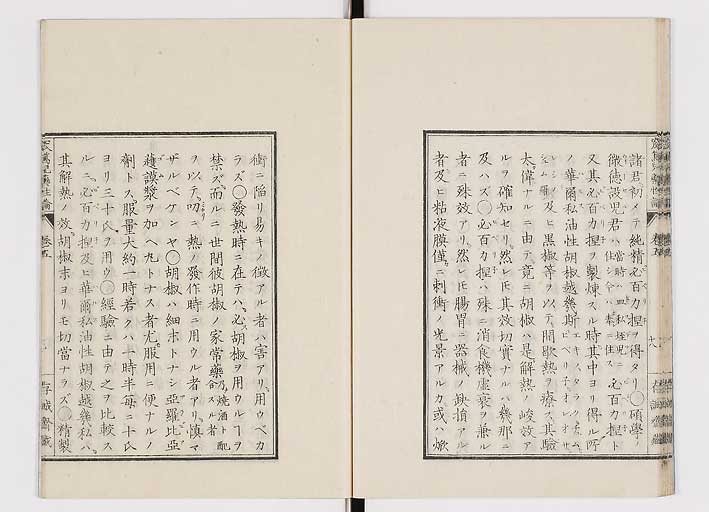 諸君初メテ純精必百力捏ヲ得タリ○碩學ノ
徹德設兒君ハ當時ハ必百力捏ト
又其必百力捏ヲ製煉スル時其中ヨリ得ル所
ノ華爾私油性胡椒越幾斯
及ヒ黒椒等ヲ以テ間歇熱ヲ療ス其驗
太偉ナルニ由テ竟ニ胡椒ハ是解熱ノ峻效ア
ルヲ確知セリ然レ𪜈其效切實ナルハ幾那ニ
及ハズ○必百力捏ハ殊ニ消食機虚衰ヲ兼ル
者ニ殊效アリ然レ𪜈腸胃ニ器械ノ缺損アル
者及ヒ粘液膜僅ニ刺衝ノ光景アルカ或ハ焮
衝ニ陷リ易キノ徴アル者ハ害アリ用ウベカ
ラズ○發熱時ニ在テハ必胡椒ヲ用ウルヿヲ
禁ズ而ルニ世間彼胡椒ノ家常藥乃燒酒ト配合スル者
ヲ以テ叨ニ熱ノ發作時ニ用ウル者アリ愼マ
ザルベケンヤ○胡椒ハ細末トナシ亞羅比亞
護謨漿ヲ加ヘ丸トナス者尤服用ニ便ナルノ
劑トス服量大約一時若クハ十時半毎ニ十氏
ヨリ三十氏ヲ用ウ○經驗ニ由テ之ヲ比較ス
ルニ必百力捏及ヒ華爾私油性胡椒越幾私ハ
其解熱ノ效胡椒末ヨリモ切當ナラズ○精製